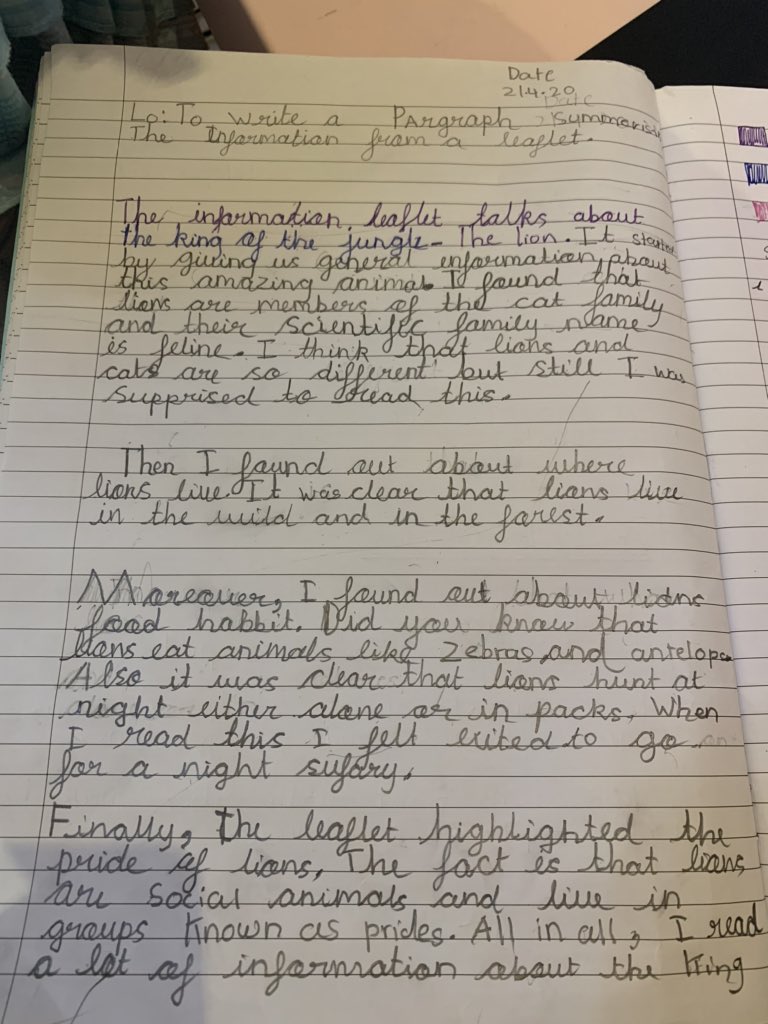 Date
21.4.20
Lo: To write a Pargraph Summarisi
The Information from a leaflet.
The information leaflet talks about
the king of the jungle - The lion. It started
by giving us general information about
this amazing animal. I found that
lions are members of the cat family
and their scientific family name
is feline. I think that lions and
cats are so different but still I was
supprised to read this.
Then I found out about where
lions live. It was clear that lions live
in the wild and in the forest.
Moreover, I found out about lions
food habbit. Did you know that
lions eat animals like zebras and antelops.
Also it was clear that lions hunt at
night either alone or in packs, When
I read this I felt exited to go
for a night sufary.
Finally, The leaflet highlighted the
pride of lions, The fact is that lions
are social animals and live in
groups known as prides. All in all, I read
a lot of information about the King